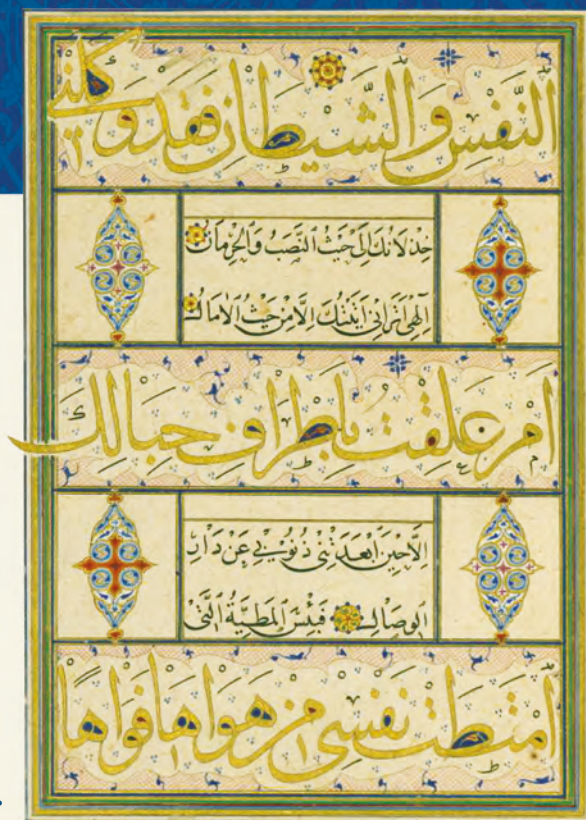 النَّفْسِ وَالشَّيْطَانِ فَقَدْ وَكَلَنِي
خِذْلَانُكَ إِلَى حَيْثُ النَّصَبُ وَالْحِرْمَانُ
إِلٰهِي أَتَرَانِي أَتَيْتُكَ إِلَّا مِنْ حَيْثُ الْآمَالُ
أَمْ عَلِقْتُ بِأَطْرَافِ حِبَالِكَ
إِلَّا حِينَ أَبْعَدَتْنِي ذُنُوبِي عَنْ دَارِ
الْوِصَالِ فَبِئْسَ الْمَطِيَّةُ الَّتِي
امْتَطَتْ نَفْسِي مِنْ هَوَاهَا فَوَاهًا